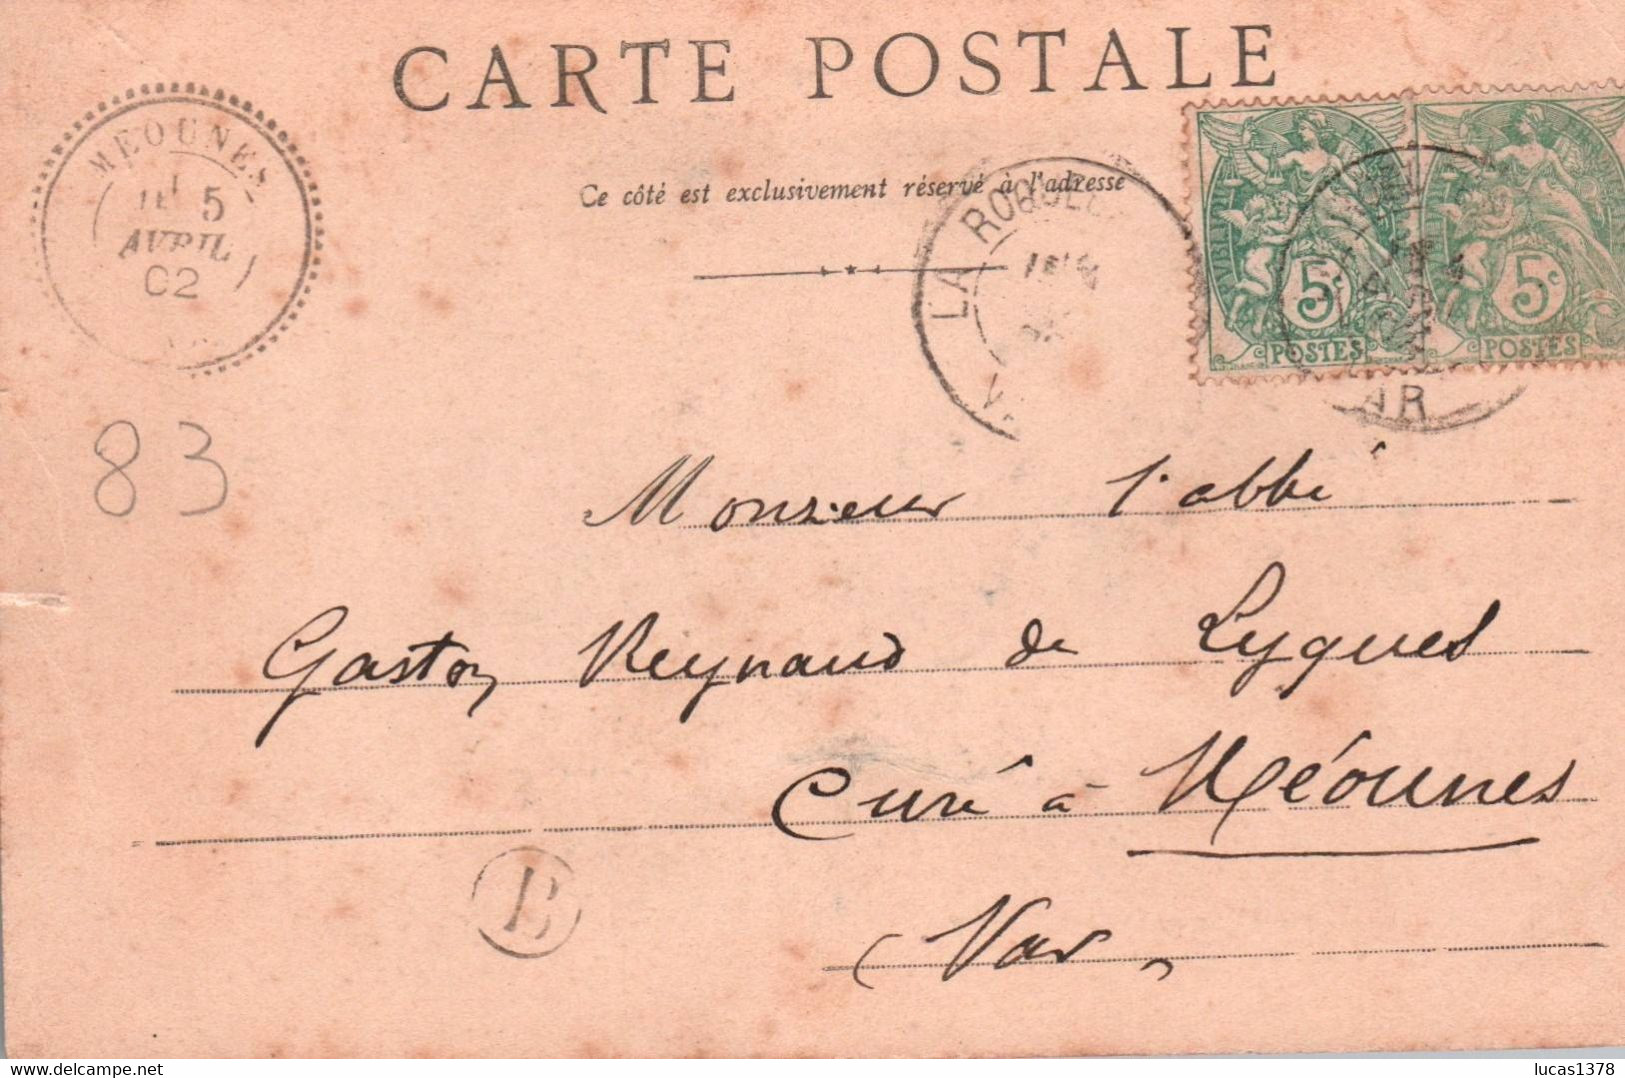 CARTE POSTALE
Ce côté est exclusivement réservé à l'adresse
MEOUNES
5
AVRIL
02
LA ROQUE
5c
POSTES
5c
POSTES
AR
83
Monsieur l'abbé
Gaston Reynaud de Lyques
Curé à Méounes
(Var
B
delcampe.net
lucas1378